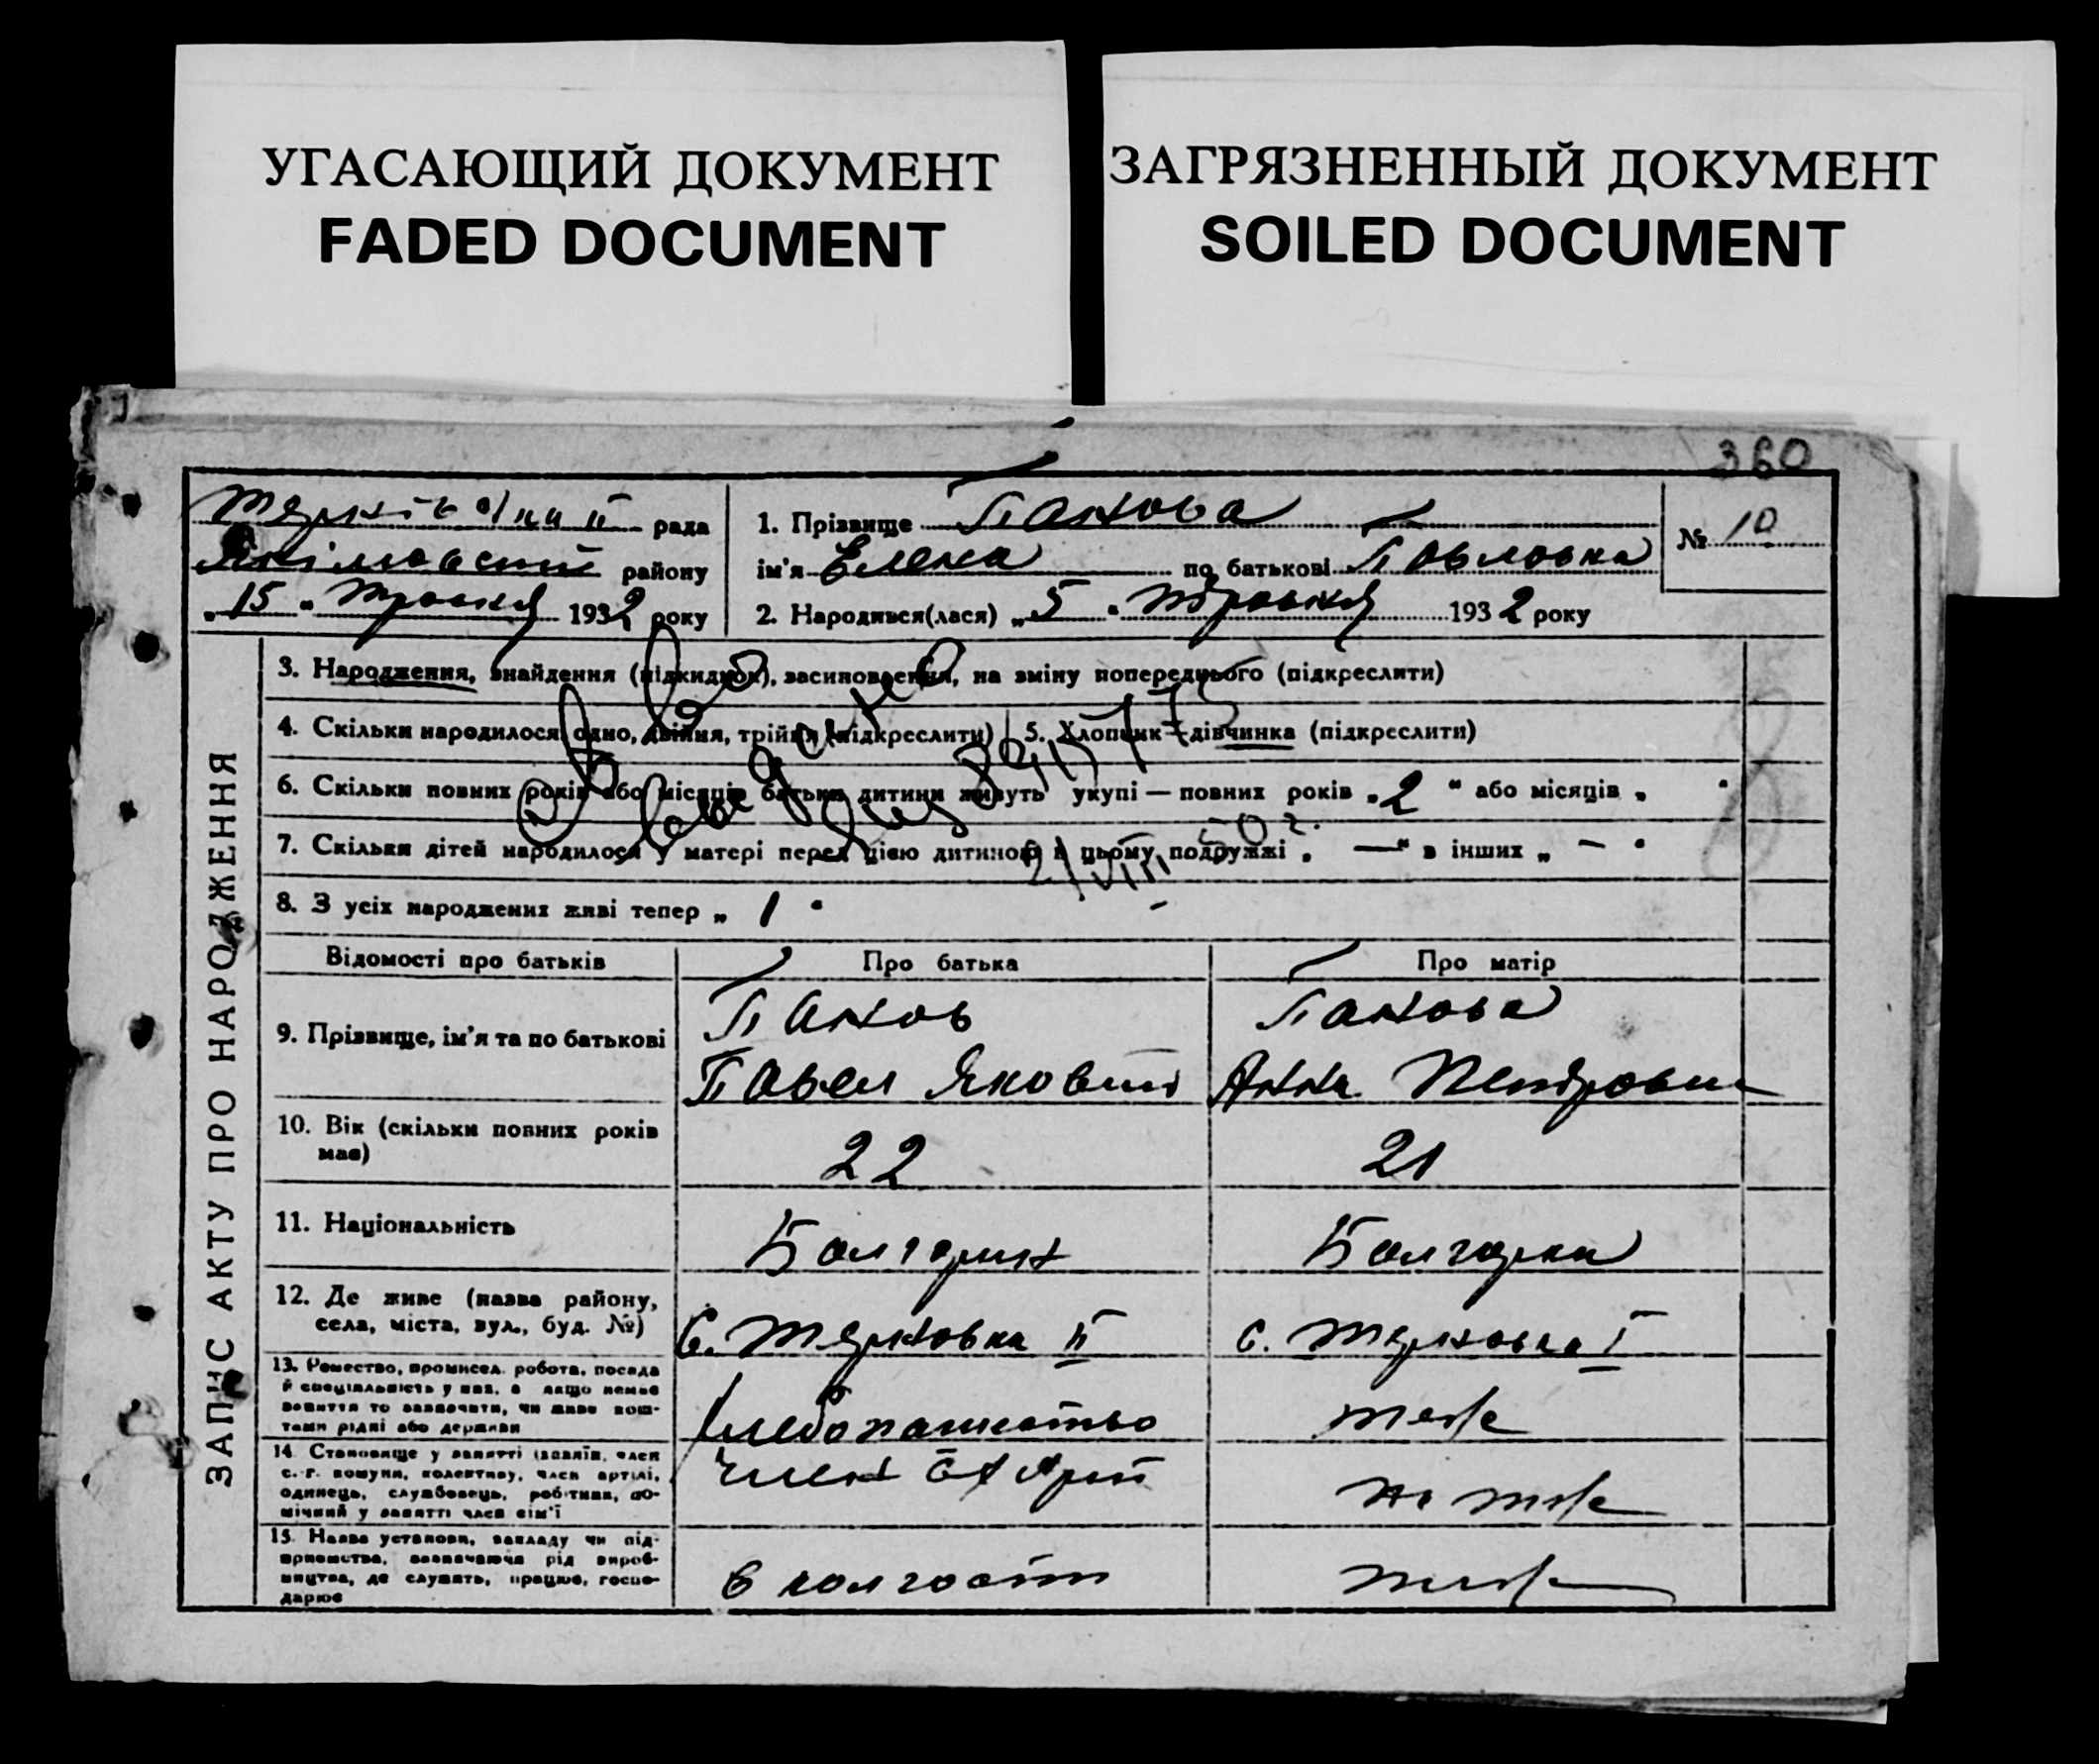 УГАСАЮЩИЙ ДОКУМЕНТ
FADED DOCUMENT
ЗАГРЯЗНЕННЫЙ ДОКУМЕНТ
SOILED DOCUMENT
360
рада
району
„ 15 " Травня 1932 року
1. Прізвище Панова
ім'я Елена по батькові Павловна
2. Народився(лася) „ 5 " Травня 1932 року
№ 10
ЗАПИС АКТУ ПРО НАРОДЖЕННЯ
3. Народження, знайдення (підкидиок), засиновлення, на зміну попереднього (підкреслити)
4. Скільки народилося одно, двійня, трійня (підкреслити) 5. Хлопчик — дівчинка (підкреслити)
6. Скільки повних років або місяців батьки дитини живуть укупі — повних років „ 2 " або місяців „ "
7. Скільки дітей народилося у матері перед цією дитиною в цьому подружжі „ — " в інших „ — "
8. З усіх народжених живі тепер „ 1 "
Відомості про батьків Про батька Про матір
9. Прізвище, ім'я та по батькові
Панов
Павел Якович
Панова
Анна Петровна
10. Вік (скільки повних років
має)
22 21
11. Національність
Болгарин Болгарка
12. Де живе (назва району,
села, міста, вул., буд. №)
С. II с. I
13. Ремество, промисел, робота, посада
й спеціальність у них, а якщо немає
заняття то зазначити, чи живе кош-
тами рідні або держави
хлебопашество
тоже
14. Становище у занятті (хазяїн, член
с.-г. комуни, колективу, член артілі,
одинець, службовець, робітник, по-
мічний у занятті член сім'ї
член
тоже
15. Назва установи, закладу чи під-
приємства, зазначаючи рід вироб-
ництва, де служить, працює, госпо-
дарює
в колгоспі
тоже